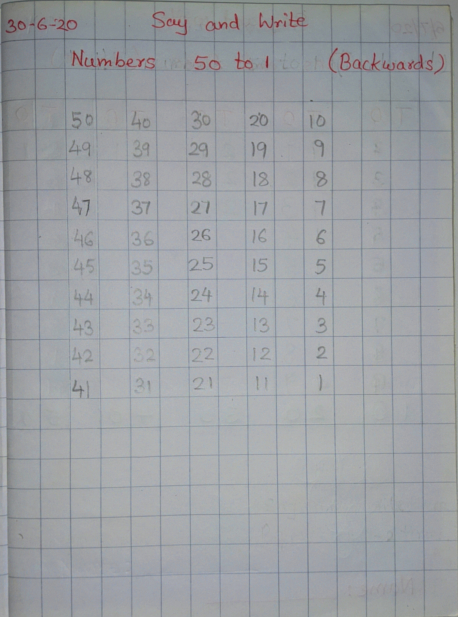 30-6-20 Say and Write
Numbers 50 to 1 (Backwards)
50 40 30 20 10
49 39 29 19 9
48 38 28 18 8
47 37 27 17 7
46 36 26 16 6
45 35 25 15 5
44 34 24 14 4
43 33 23 13 3
42 32 22 12 2
41 31 21 11 1